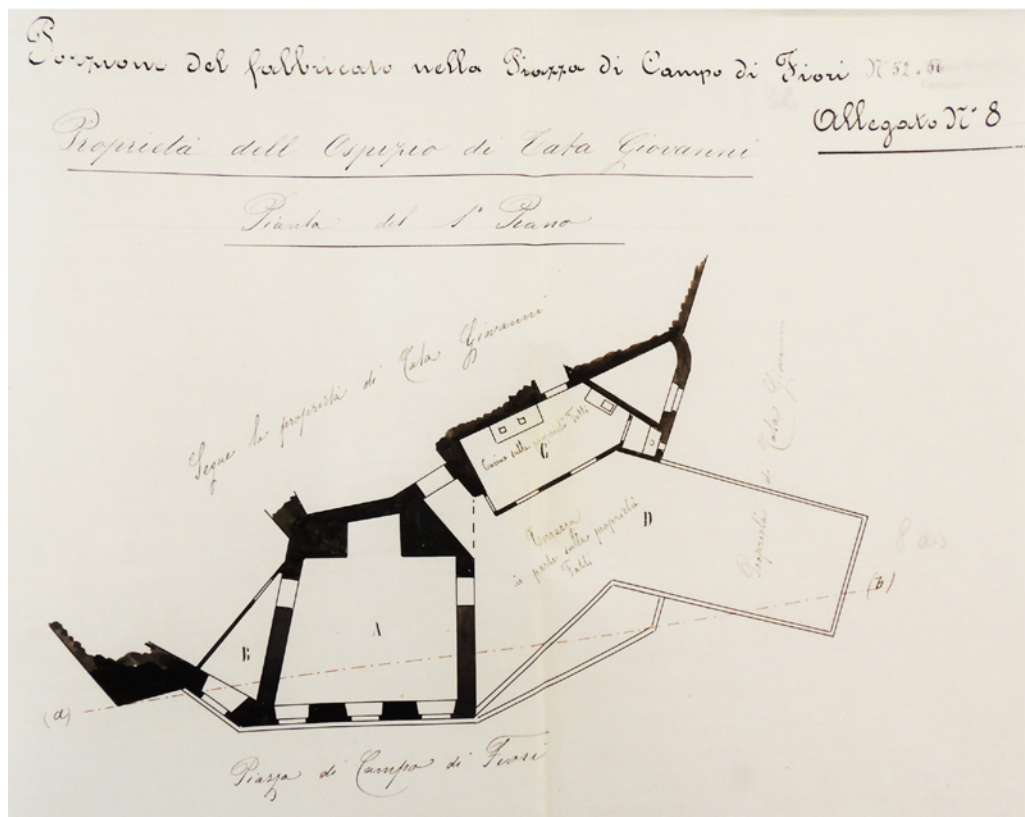 Porzione del fabbricato nella Piazza di Campo di Fiori N 52.
Allegato N° 8
Proprietà dell Ospizio di Tata Giovanni
Pianta del 1° Piano
Segue la proprietà di Tata Giovanni
Cucina sulla proprietà Tatti
C
D
Terrazza
in parte sulla proprietà
Tatti
Proprietà di Tata Giovanni
8 bis
(b)
A
B
(a)
Piazza di Campo di Fiori